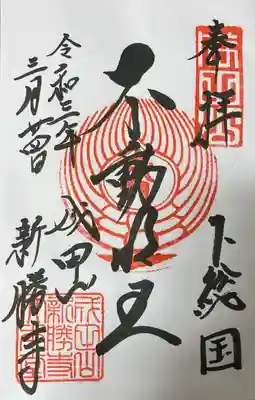 奉拝
下総国
不動明王
令和二年
三月廿四日
成田山
新勝寺
成田山
新勝寺